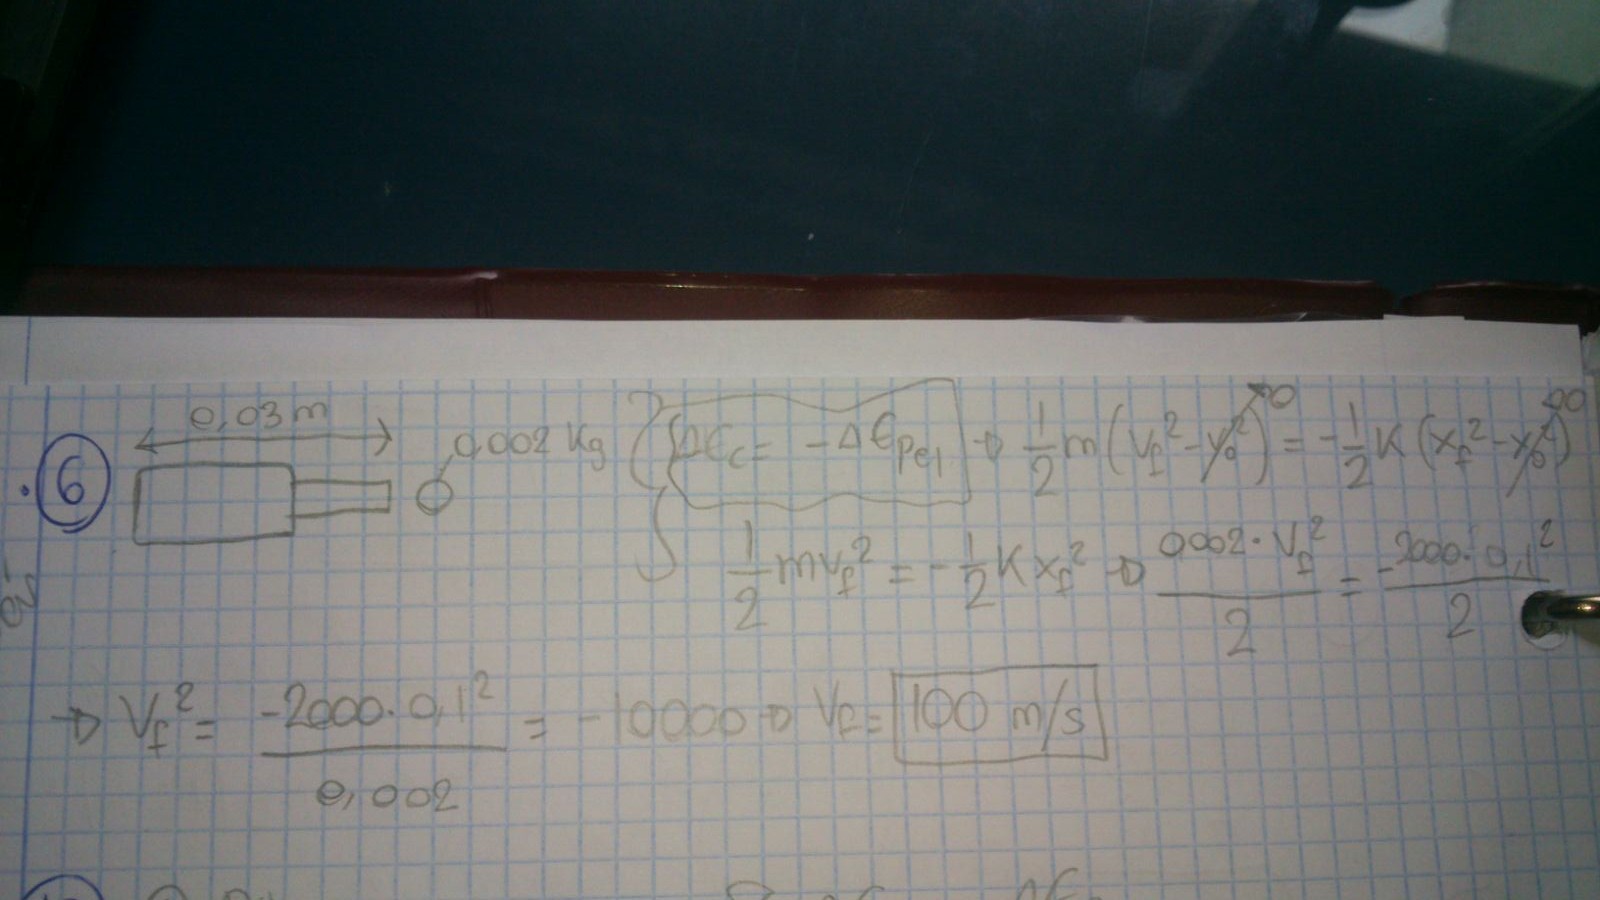 0,03 m
6 0,002 Kg ΔEc = -ΔEpel → 1/2 m (Vf² - V0²) = -1/2 K (xf² - x0²) 0 0
1/2 mvf² = -1/2 K xf² → 0002 · Vf² / 2 = -2000 · 0,1² / 2
→ Vf² = -2000 · 0,1² / 0,002 = -10000 → Vf = 100 m/s